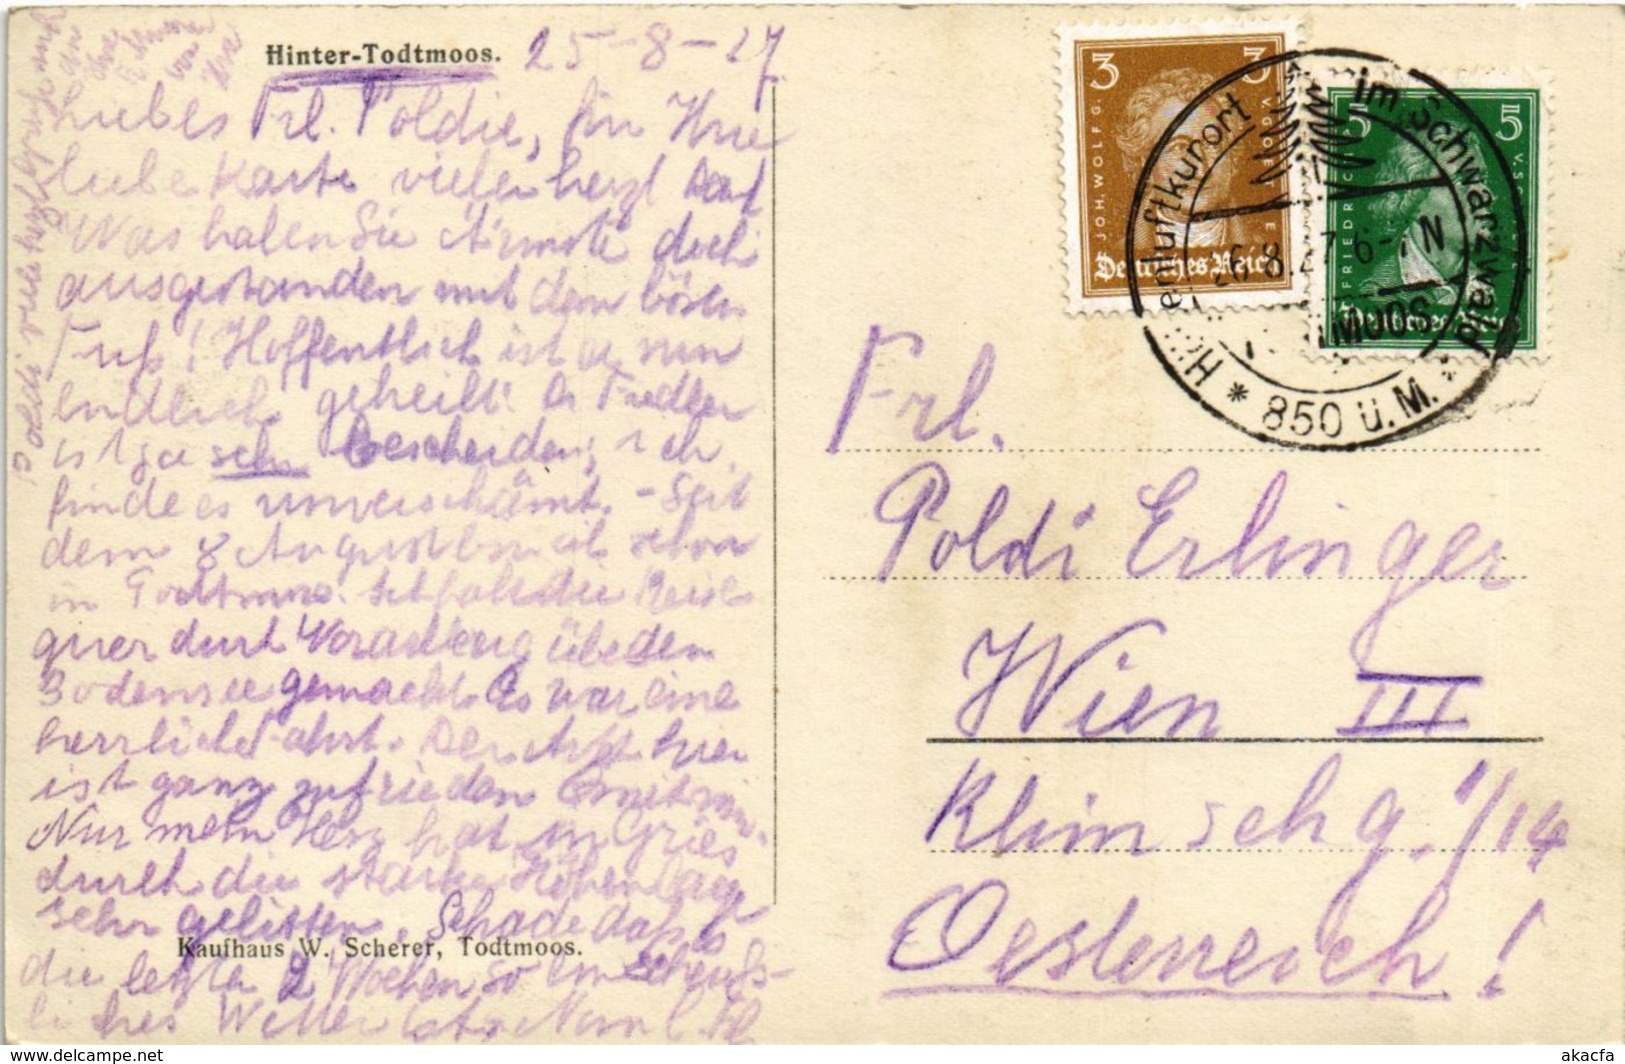 Hinter-Todtmoos. 25-8-27.
Liebes Frl. Poldie, für Ihre
liebe Karte vielen herzl Dank
Was haben Sie Ärmste doch
ausgestanden mit dem bösen
Fuß! Hoffentlich ist er nun
endlich geheilt! Fiedler
ist ja sehr bescheiden; ich
finde es unverschämt. - Seit
dem 8 August bin ich schon
in Todtmoos. Ich habe die Reise
quer durch Vorarlberg über den
Bodensee gemacht. Es war eine
herrliche Fahrt. Der Arzt hier
ist ganz zufrieden mit mir.
Nur mein Herz hat in Gries
durch die starke Höhenlage
sehr gelitten. Schade daß es
Kaufhaus W. Scherer, Todtmoos.
die letzten 2 Wochen so ein scheuß-
liches Wetter
Poldi viele herzl Grüße auch
an Ihre von Ihrer
3 3
JOH. WOLFG. V. GOETHE
Deutsches Reich
5 5
FRIEDRICH V. SCH
Deutsches Reich
Höhenluftkurort im Schwarzwald
26.8.27.6-7N
TODTMOOS
* 850 ü.M. *
Frl.
Poldi Erlinger
Wien III
Klimschg. 1/14
Oesterreich!
akacfa
https://www.delcampe.net